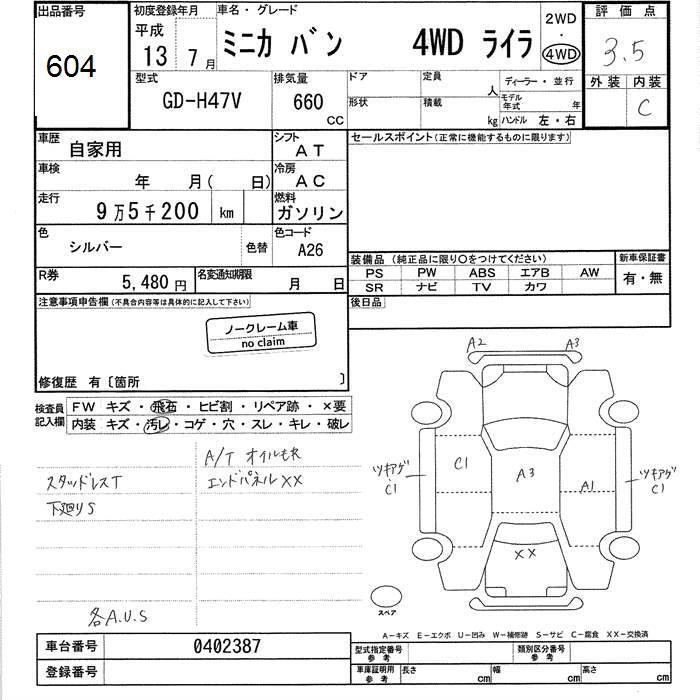 出品番号
604
初度登録年月
平成
13 7月
車名・グレード
ミニカ バン 4WD ライラ
2WD
・
4WD
評価点
3.5
外装 内装
C
型式
GD-H47V
排気量
660
CC
ドア
形状
定員
人
積載
kg
ディーラー・並行
モデル年式 年
ハンドル 左・右
車歴
自家用
シフト
AT
車検
年 月( 日)
冷房
AC
走行
9万5千200 km
燃料
ガソリン
色
シルバー
色替
色コード
A26
R券
5,480円
名変通知期限
月 日
セールスポイント(正常に機能するものに限ります)
装備品(純正品に限り〇をつけてください)
PS PW ABS エアB AW
SR ナビ TV カワ
新車保証書
有・無
後日品
注意事項申告欄(不具合内容等は具体的に記入して下さい)
ノークレーム車
no claim
修復歴 有〔箇所 〕
検査員
記入欄
FW キズ・飛石・ヒビ割・リペア跡・×要
内装 キズ・汚レ・コゲ・穴・スレ・キレ・破レ
A/T オイルモレ
スタッドレスT
エンドパネルXX
下廻りS
各A.U.S
A2
A3
ツキアゲ
C1
C1
A3
A1
ツキアゲ
C1
XX
スペア
A−キズ E−エクボ U−凹み W−補修跡 S−サビ C−腐食 XX−交換済
車台番号
0402387
登録番号
型式指定番号
参考
類別区分番号
参考
車庫証明用
参考
長さ cm
幅 cm
高さ cm